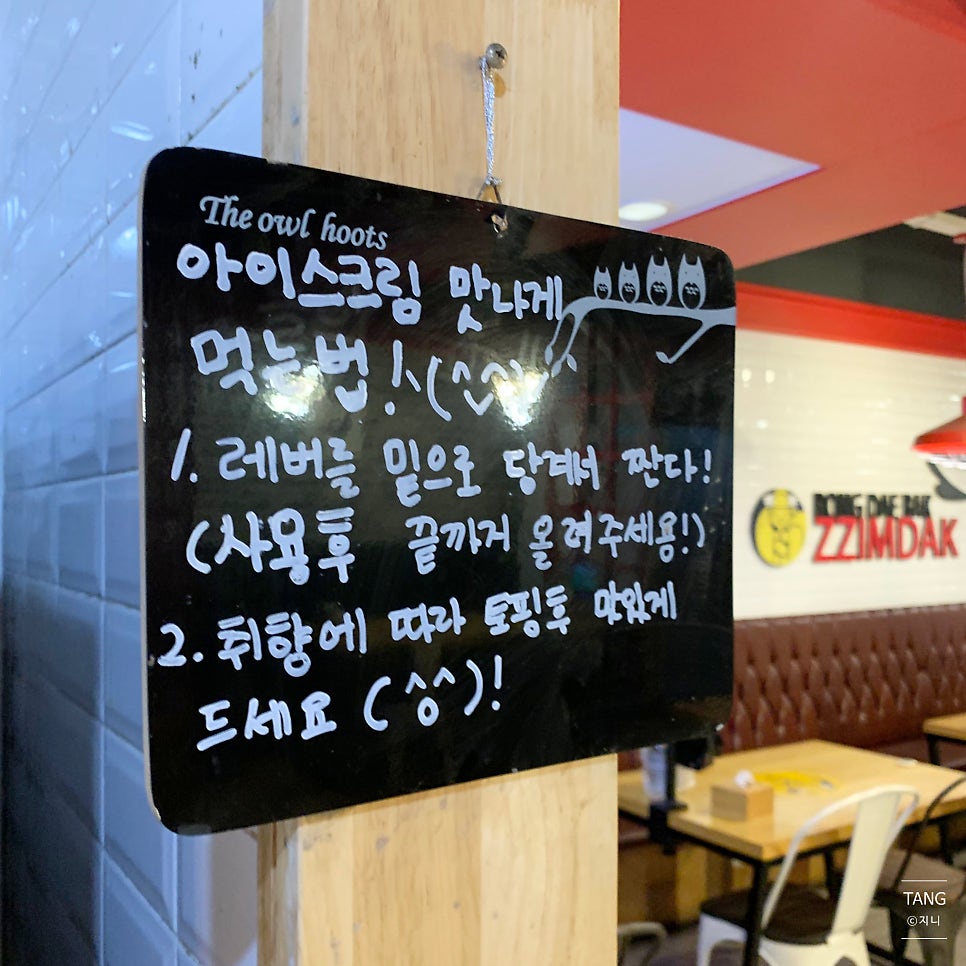 The owl hoots
아이스크림 맛나게
먹는법!(^◡^)
1. 레버를 밑으로 당겨서 짠다!
(사용후 끝까지 올려주세용!)
2. 취향에 따라 토핑후 맛있게
드세요 (^o^)!
BONG DAE BAK
ZZIMDAK
TANG
©지니